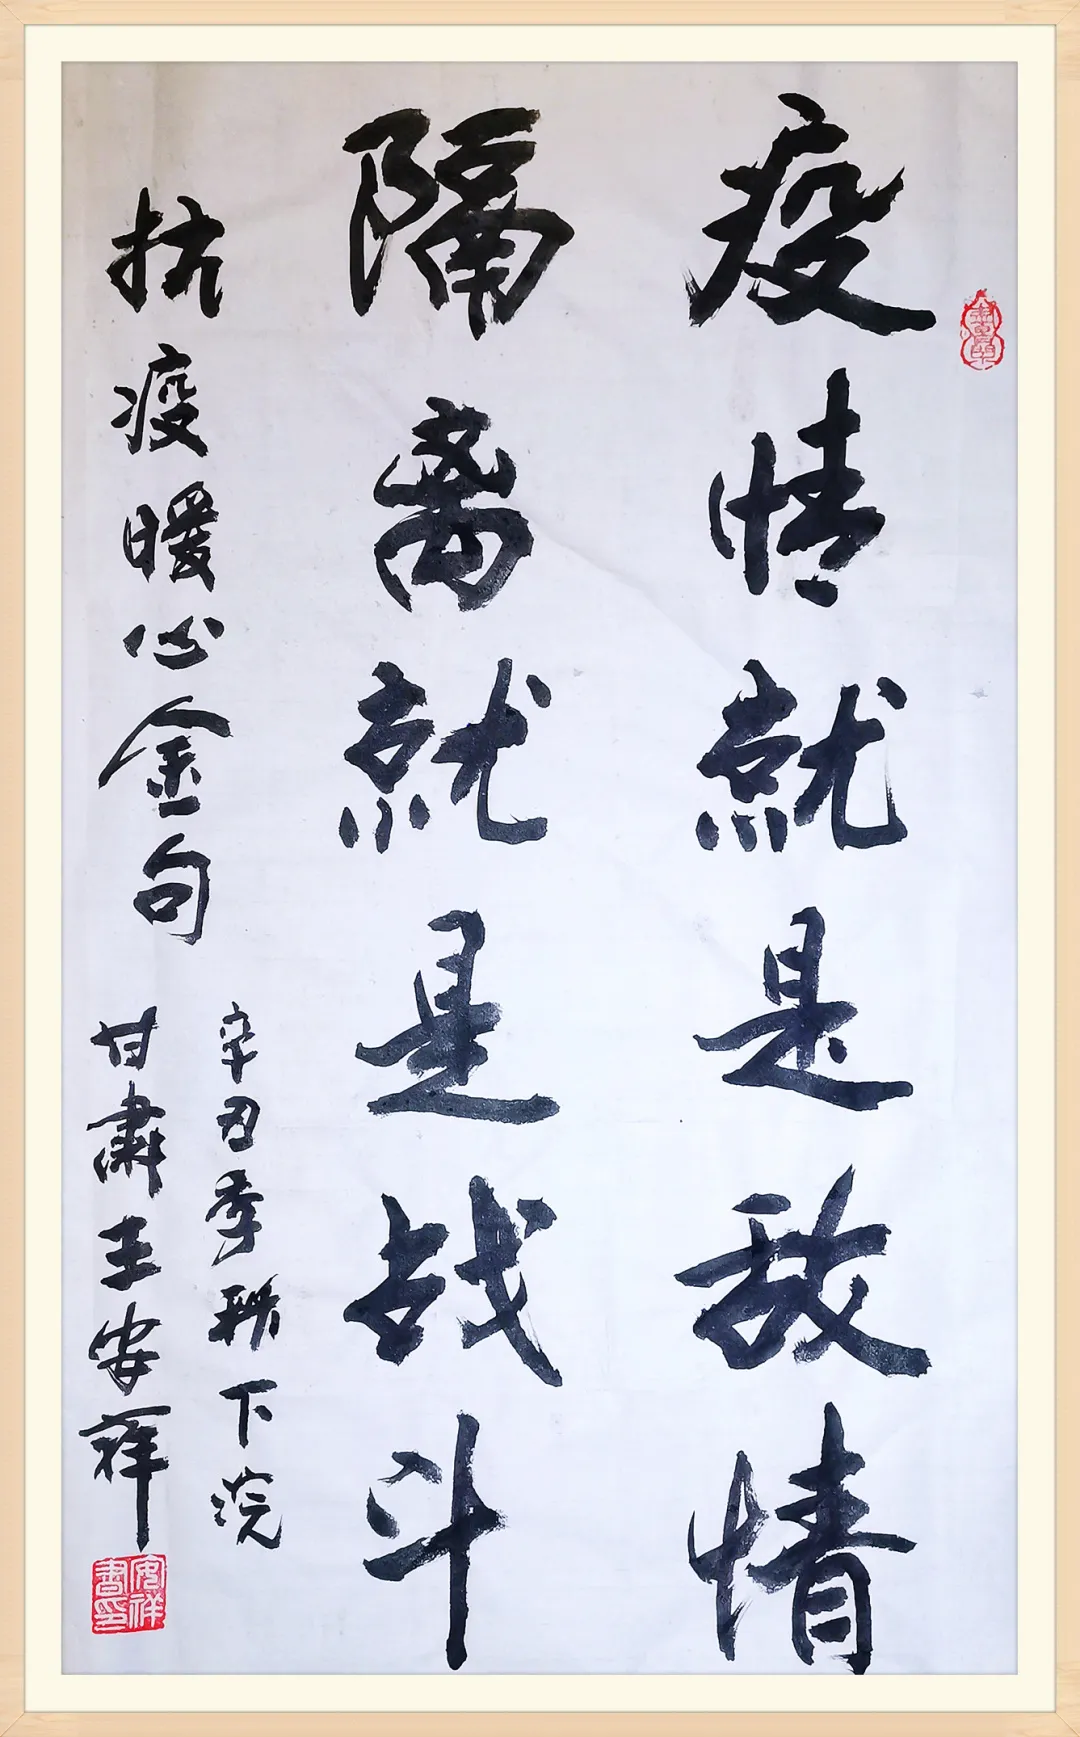 疫情就是敌情
隔离就是战斗
抗疫暖心金句
辛丑季秋下浣
甘肃王安祥
安祥書印